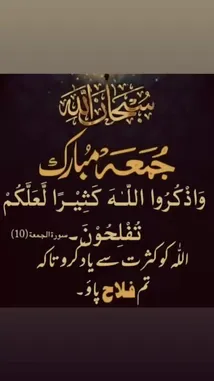 سُبْحَانَ اللّٰه
جُمعَہ مُبارک
وَاذْكُرُوا اللّـٰهَ كَثِيْرًا لَّعَلَّكُمْ
تُفْلِحُوْنَ۔ سورۃ الجمعۃ (10)
اللہ کو کثرت سے یاد کرو تاکہ
تم فلاح پاؤ۔